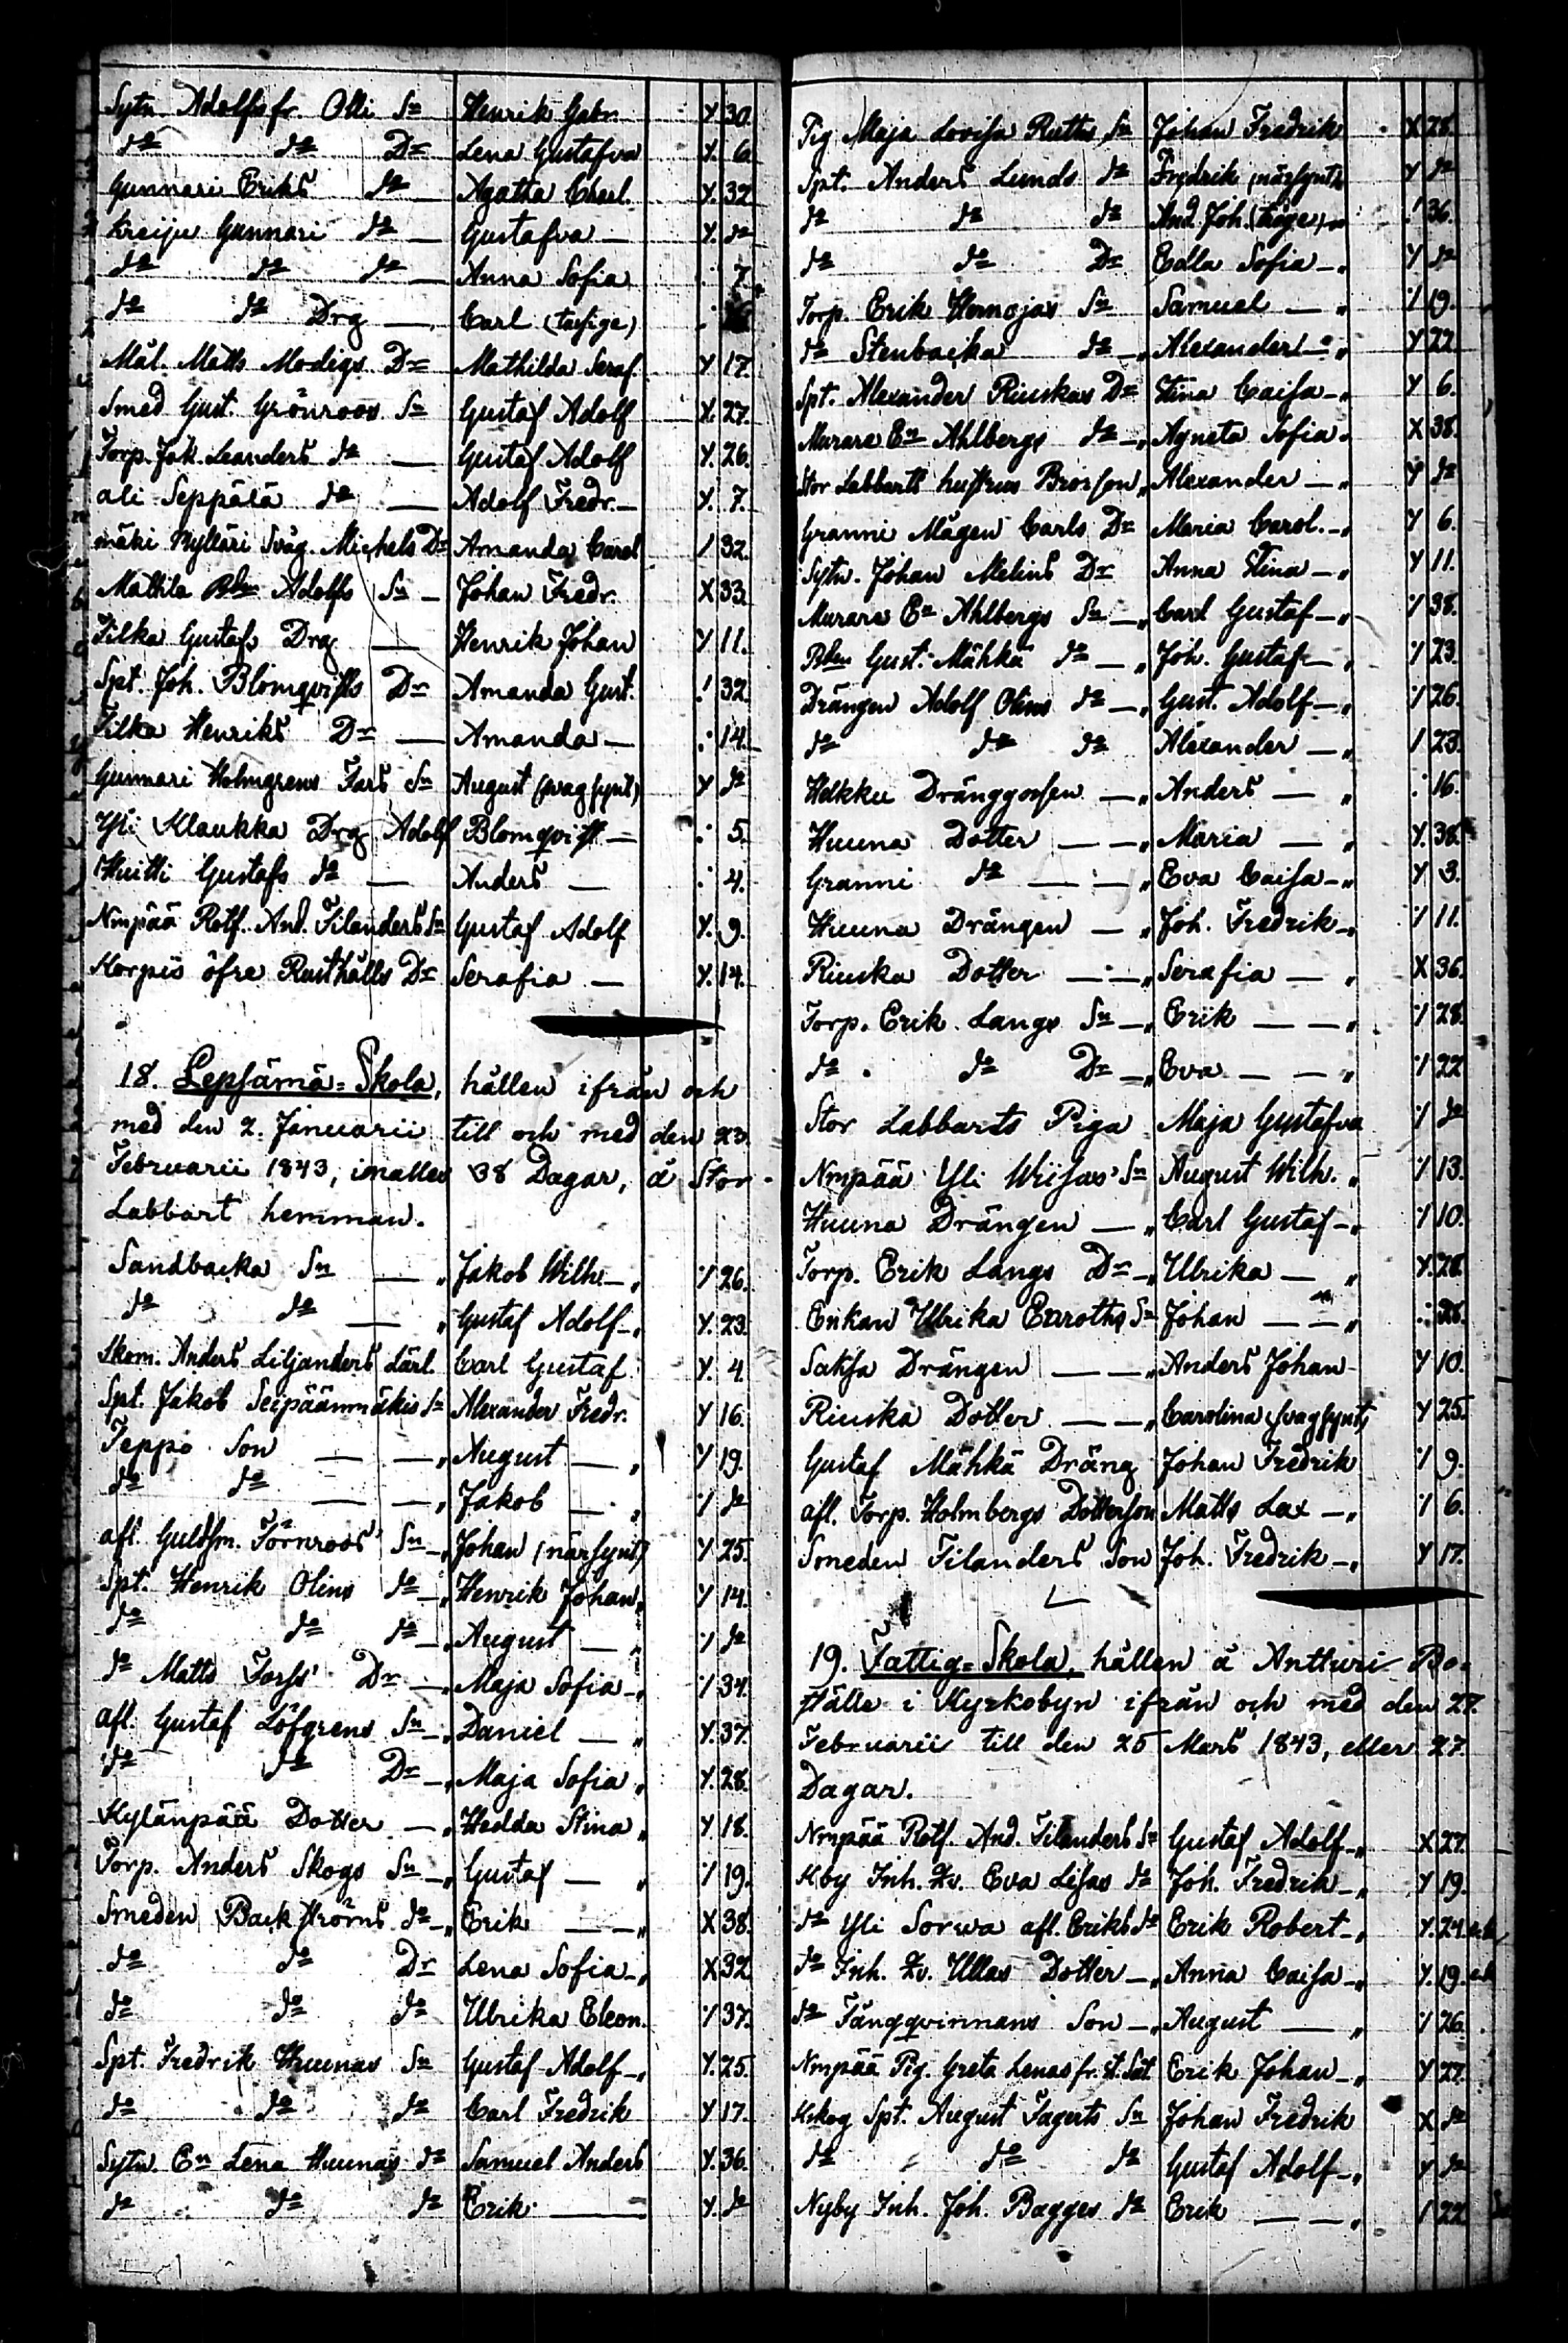 Sytn. Adolfs fr. Olli Sn Henrik Gabr. Y. 30.
do do Dr Lena Gustafva Y. 6
Gunnari Eriks do — Agatha Charl. Y. 32
Kreiju Gunnari do — Gustafva — Y. do
do do do — Anna Sofia ⸫ 7.
do do Drg — Carl
Mål. Matts Modigs Dr Mathilda Seraf. Y 17.
Smed Gust. Grönroos Sn Gustaf Adolf X. 27.
Torp. Joh. Leanders do — Gustaf Adolf Y. 26.
ali Seppälä do — Adolf Fredr. — Y. 7.
mäki Kylläri Svåg. Michels Dr Amanda Carol / 32.
Mathla Bdn Adolfs Sn — Johan Fredr. X 33
Tilka Gustafs Drg — Henrik Johan Y 11.
Spt. Joh. Blomqvists Dr Amanda Gust. ⸫ 32
Tilka Henriks Dr — Amanda — ⸫ 14.
Gunnari Holmgrens Fars Sn August (svagsynt) Y do
Yli Klaukka Drg Adolf Blomqvist — ⸫ 5.
Huitti Gustafs do — Anders — ⸫ 4.
Nmpää Rotf. And. Tilanders Sn Gustaf Adolf Y. 9.
Korpis öfre Rusthålls Dr Serafia — Y. 14.
18. Lepsämä=Skola, hållen ifrån och
med den 2. Januarii till och med den 23.
Februarii 1843, inalles 38 Dagar, å Stor-
Labbart hemman.
Sandbacka Sn — „ Jakob Wilh. — „ ⁒ 26.
do do — „ Gustaf Adolf — „ Y. 23.
Skom. Anders Liljanders Lärl. Carl Gustaf Y. 4
Spt. Jakob Seipäänmäkis Sn Alexander Fredr. Y 16.
Teppo Son — — „ August — „ Y 19.
do do — — „ Jakob — „ ⁒ do
afl. Guldsm. Törnroos' Sn — „ Johan (närsynt) Y 25.
Spt. Henrik Olins do — „ Henrik Johan „ Y 14.
do do do — „ August — „ ⁒ do
do Matts Forss' Dr — „ Maja Sofia — „ ⁒ 34.
afl. Gustaf Löfgrens Sn — „ Daniel — „ Y. 37.
do do Dr — „ Maja Sofia „ Y. 28.
Kylänpää Dotter — „ Hedda Stina „ Y. 18.
Torp. Anders Skogs Sn — „ Gustaf — „ ⁒ 19.
Smeden Backströms do — „ Erik — — „ X 38.
do do Dr Lena Sofia — „ X 32
do do do Ulrika Eleon. ⁒ 37.
Spt. Fredrik Huunas Sn Gustaf Adolf — „ Y. 25.
do do do Carl Fredrik Y 17.
Sytn. En Lena Huunas do Samuel Anders Y. 36.
do do do Erik — Y. do
Pig. Maja Lovisa Ruths Sn Johan Fredrik X 28.
Spt. Anders Lunds do Fredrik (närsynt) Y do
do do do And. Joh. (tröge) „ ⸫ 36.
do do Dr Edla Sofia — „ Y do
Torp. Erik Hemojas Sn Samuel — „ ⁒ 19.
do Stenbacka do — „ Alexander — „ Y 22
Spt. Alexander Riuskas Dr Stina Caisa — „ Y 6.
Murare En Ahlbergs do — „ Agneta Sofia „ X 38.
Stor Labbarts hustrus Brorson „ Alexander — „ Y do
Granni Mågen Carls Dr Maria Carol. — „ Y 6.
Sytn. Johan Melins Dr Anna Stina — „ Y 11.
Murare En Ahlbergs Sn — „ Carl Gustaf — „ ⁒ 38.
Bdn Gust. Mähkä do — „ Joh. Gustaf — „ ⁒ 23.
Drängen Adolf Olins do — „ Gust. Adolf — „ ⁒ 26.
do do do Alexander — „ / 23.
Helkku Dränggossen — „ Anders — „ ⸫ 16.
Huuna Dotter — — „ Maria — „ Y. 38.
Granni do — — „ Eva Caisa — „ Y 3.
Huuna Drängen — „ Joh. Fredrik — „ ⁒ 11.
Riuska Dotter — — „ Serafia — „ X 36.
Torp. Erik Langs Sn — „ Erik — — „ ⁒ 28.
do do Dr — „ Eva — — „ ⁒ 22
Stor Labbarts Piga Maja Gustafva ⁒ do
Nmpää Yli Wiisas' Sn August Wilh. „ ⁒ 13.
Huuna Drängen — „ Carl Gustaf — „ ⁒ 10.
Torp. Erik Langs Dr — „ Ulrika — „ Y. 28.
Enkan Ulrika Sn Johan — — „ ⸫ 28.
Saksa Drängen — — „ Anders Johan Y 10.
Riuska Dotter — — „ Carolina (svagsynt) Y 25.
Gustaf Mähkä Dräng Johan Fredrik ⁒ 9.
afl. Torp. Holmbergs Dotterson Matts Lax — „ ⁒ 6.
Smeden Tilanders Son Joh. Fredrik — „ Y 17.
19. Fattig=Skola, hållen å Antturi Bo-
ställe i Kyrkobyn ifrån och med den 27.
Februarii till den 25 Mars 1843, eller 27.
Dagar.
Nmpää Rotf. And. Tilanders Sn Gustaf Adolf — „ X 27.
Kby Inh. Ev. Eva Lisas do Joh. Fredrik — „ Y 19.
do Yli Sorwa afl. Eriks do Erik Robert — „ Y. 24.
do Inh. Ev. Ullas Dotter — „ Anna Caisa — „ Y. 19.
do Fångqvinnans Son — „ August — „ ⁒ 26.
Nmpää Pig. Greta Lenas fr. Erik Johan — „ Y 27.
Kskog Spt. August Fagerts Sn Johan Fredrik X do
do do do Gustaf Adolf — „ Y do
Nyby Inh. Joh. Bagges do Erik — — „ / 22